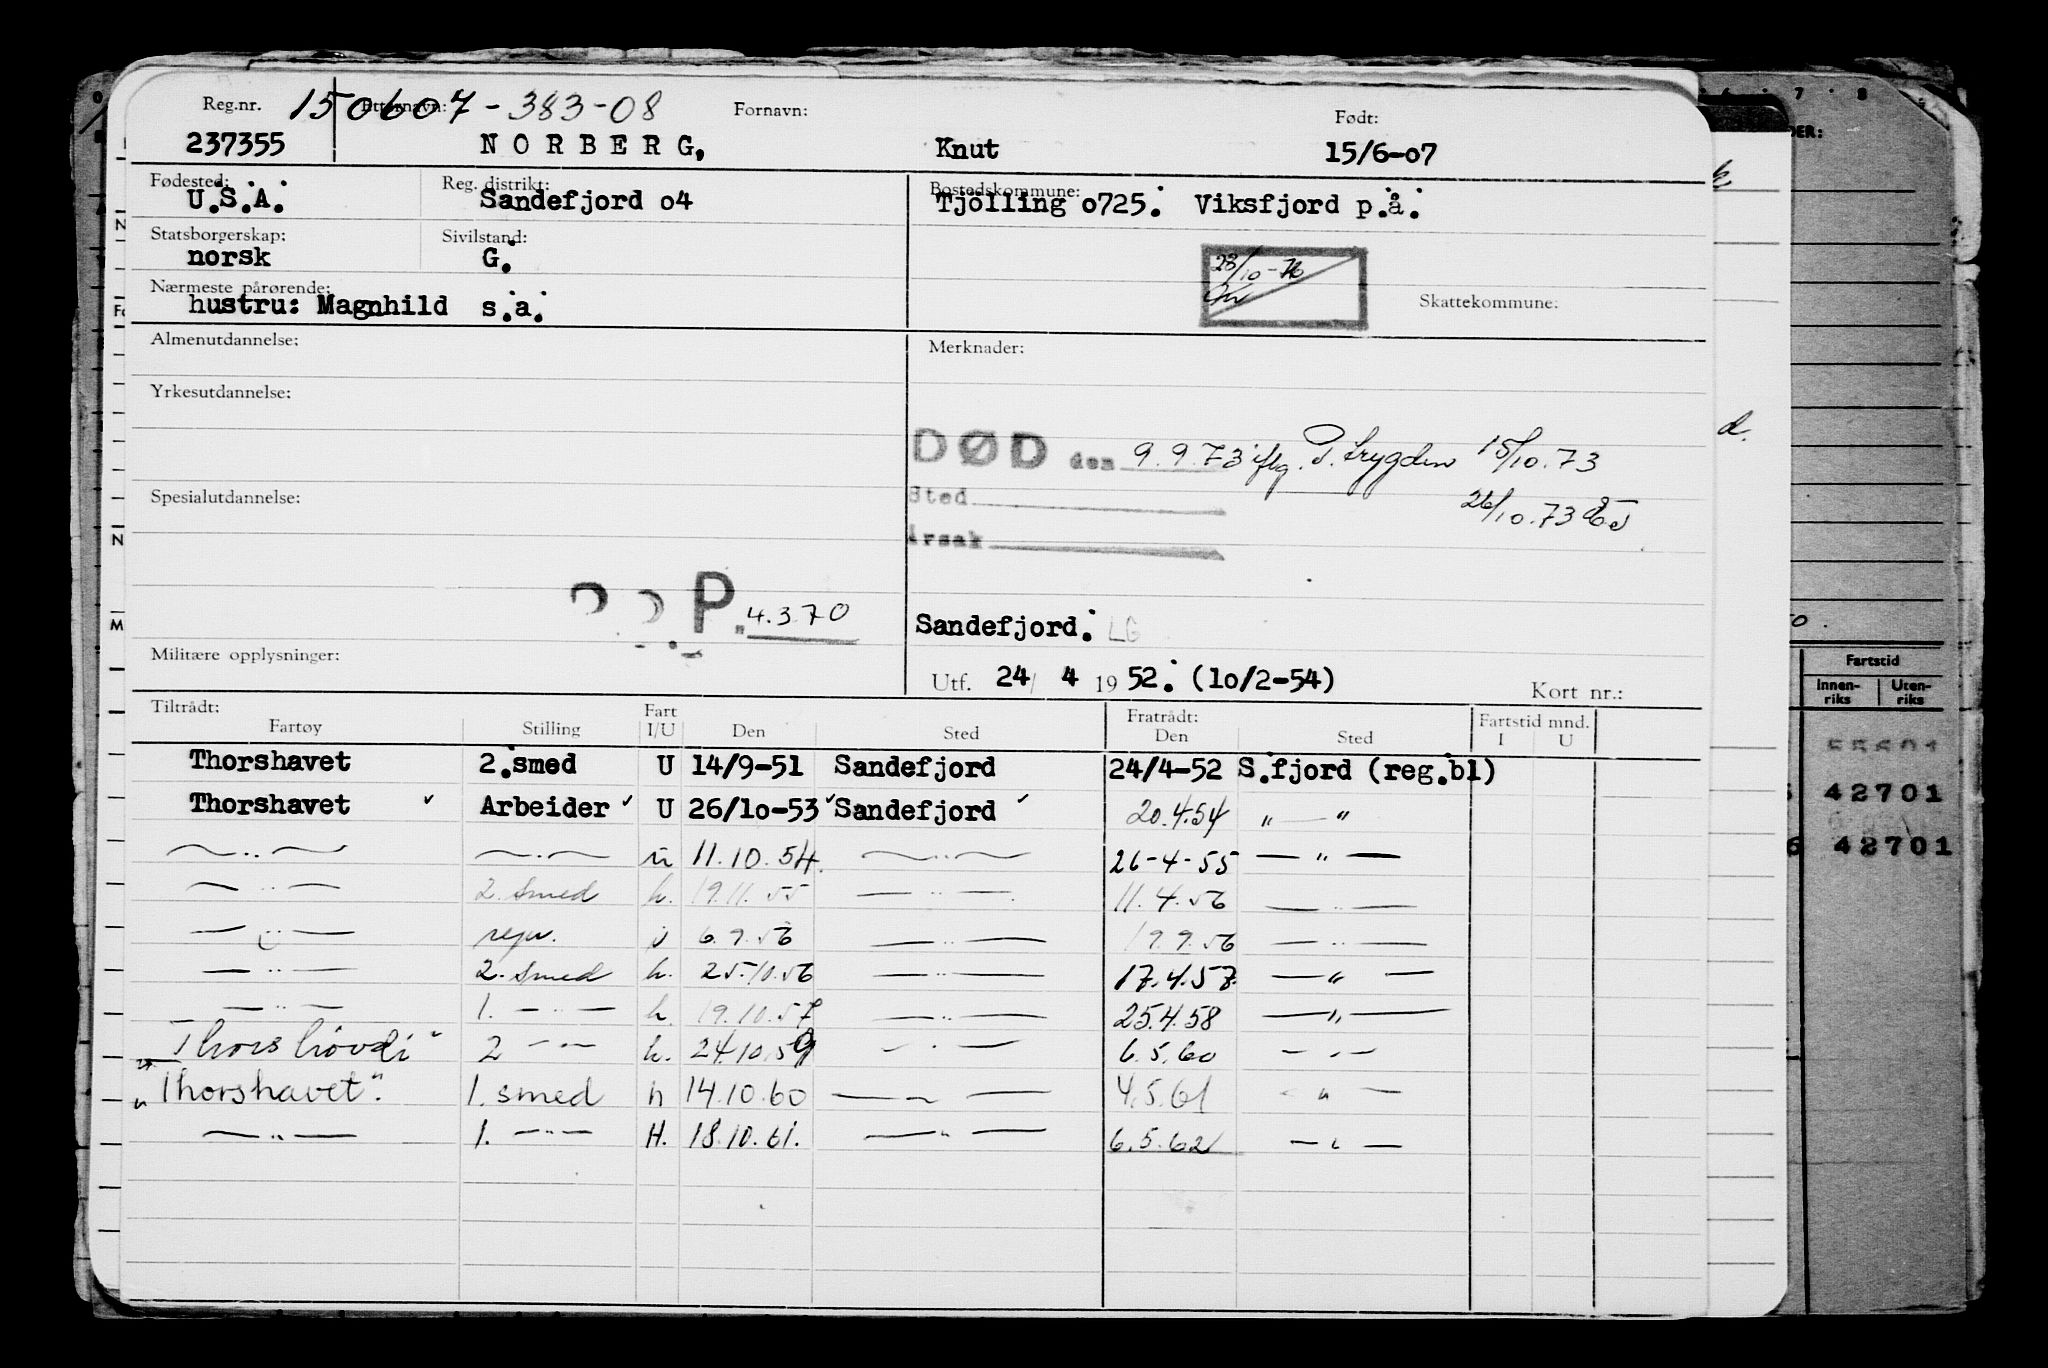 Reg.nr. 150607-383-08 Etternavn: Fornavn: Født:
237355 NORBERG, Knut 15/6-07
Fødested: Reg. distrikt: Bostedskommune:
U.S.A. Sandefjord 04 Tjölling 0725. Viksfjord p.å.
Statsborgerskap: Sivilstand:
norsk G.
28/10-76
Nærmeste pårørende: Skattekommune:
hustru: Magnhild s.a.
Almenutdannelse: Merknader:
Yrkesutdannelse:
DØD den 9.9.73 iflg. P. trygden 15/10.73
Spesialutdannelse: Sted 26/10.73
Årsak
P. 4.3.70
Sandefjord. LG
Militære opplysninger:
Utf. 24/ 4 1952. (10/2-54) Kort nr.:
Tiltrådt: Fart Fratrådt: Fartstid mnd.
Fartøy Stilling I/U Den Sted Den Sted I U
Thorshavet 2.smed U 14/9-51 Sandefjord 24/4-52 S.fjord (reg.bl)
Thorshavet ✓ Arbeider ✓ U 26/10-53 ✓ Sandefjord ✓ 20.4.54 — " —
— " — — " — u 11.10.54. — " — 26-4-55 — " —
— " — 2. smed h. 19.11.55 — " — 11.4.56 — " —
— " — repr. 6.9.56 — " — 19.9.56 — " —
— " — 2. smed h. 25.10.56 — " — 17.4.57. — " —
— " — 1. — " — h. 19.10.57 — " — 25.4.58 — " —
"Thorshövdi" 2 — " — h. 24.10.59 — " — 6.5.60 — " —
"Thorshavet". 1. smed h 14.10.60 — " — 4.5.61 — " —
— " — 1. — " — H. 18.10.61. — " — 6.5.62 — " —
DER:
d.
Fartstid
Innen-riks Uten-riks
55601
42701
6 42701